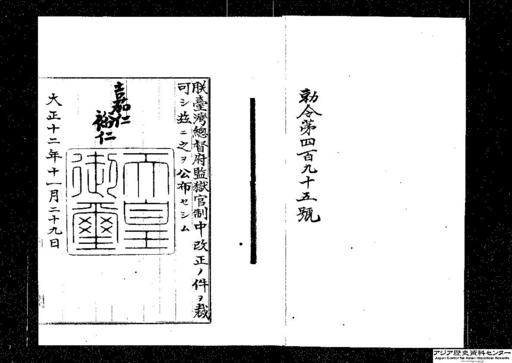 勅令第四百九十五號
朕臺灣總督府監獄官制中改正ノ件ヲ裁
可シ玆ニ之ヲ公布セシム
嘉仁
裕仁
天皇
御璽
大正十二年十一月二十九日
アジア歴史資料センター
Japan Center for Asian Historical Records